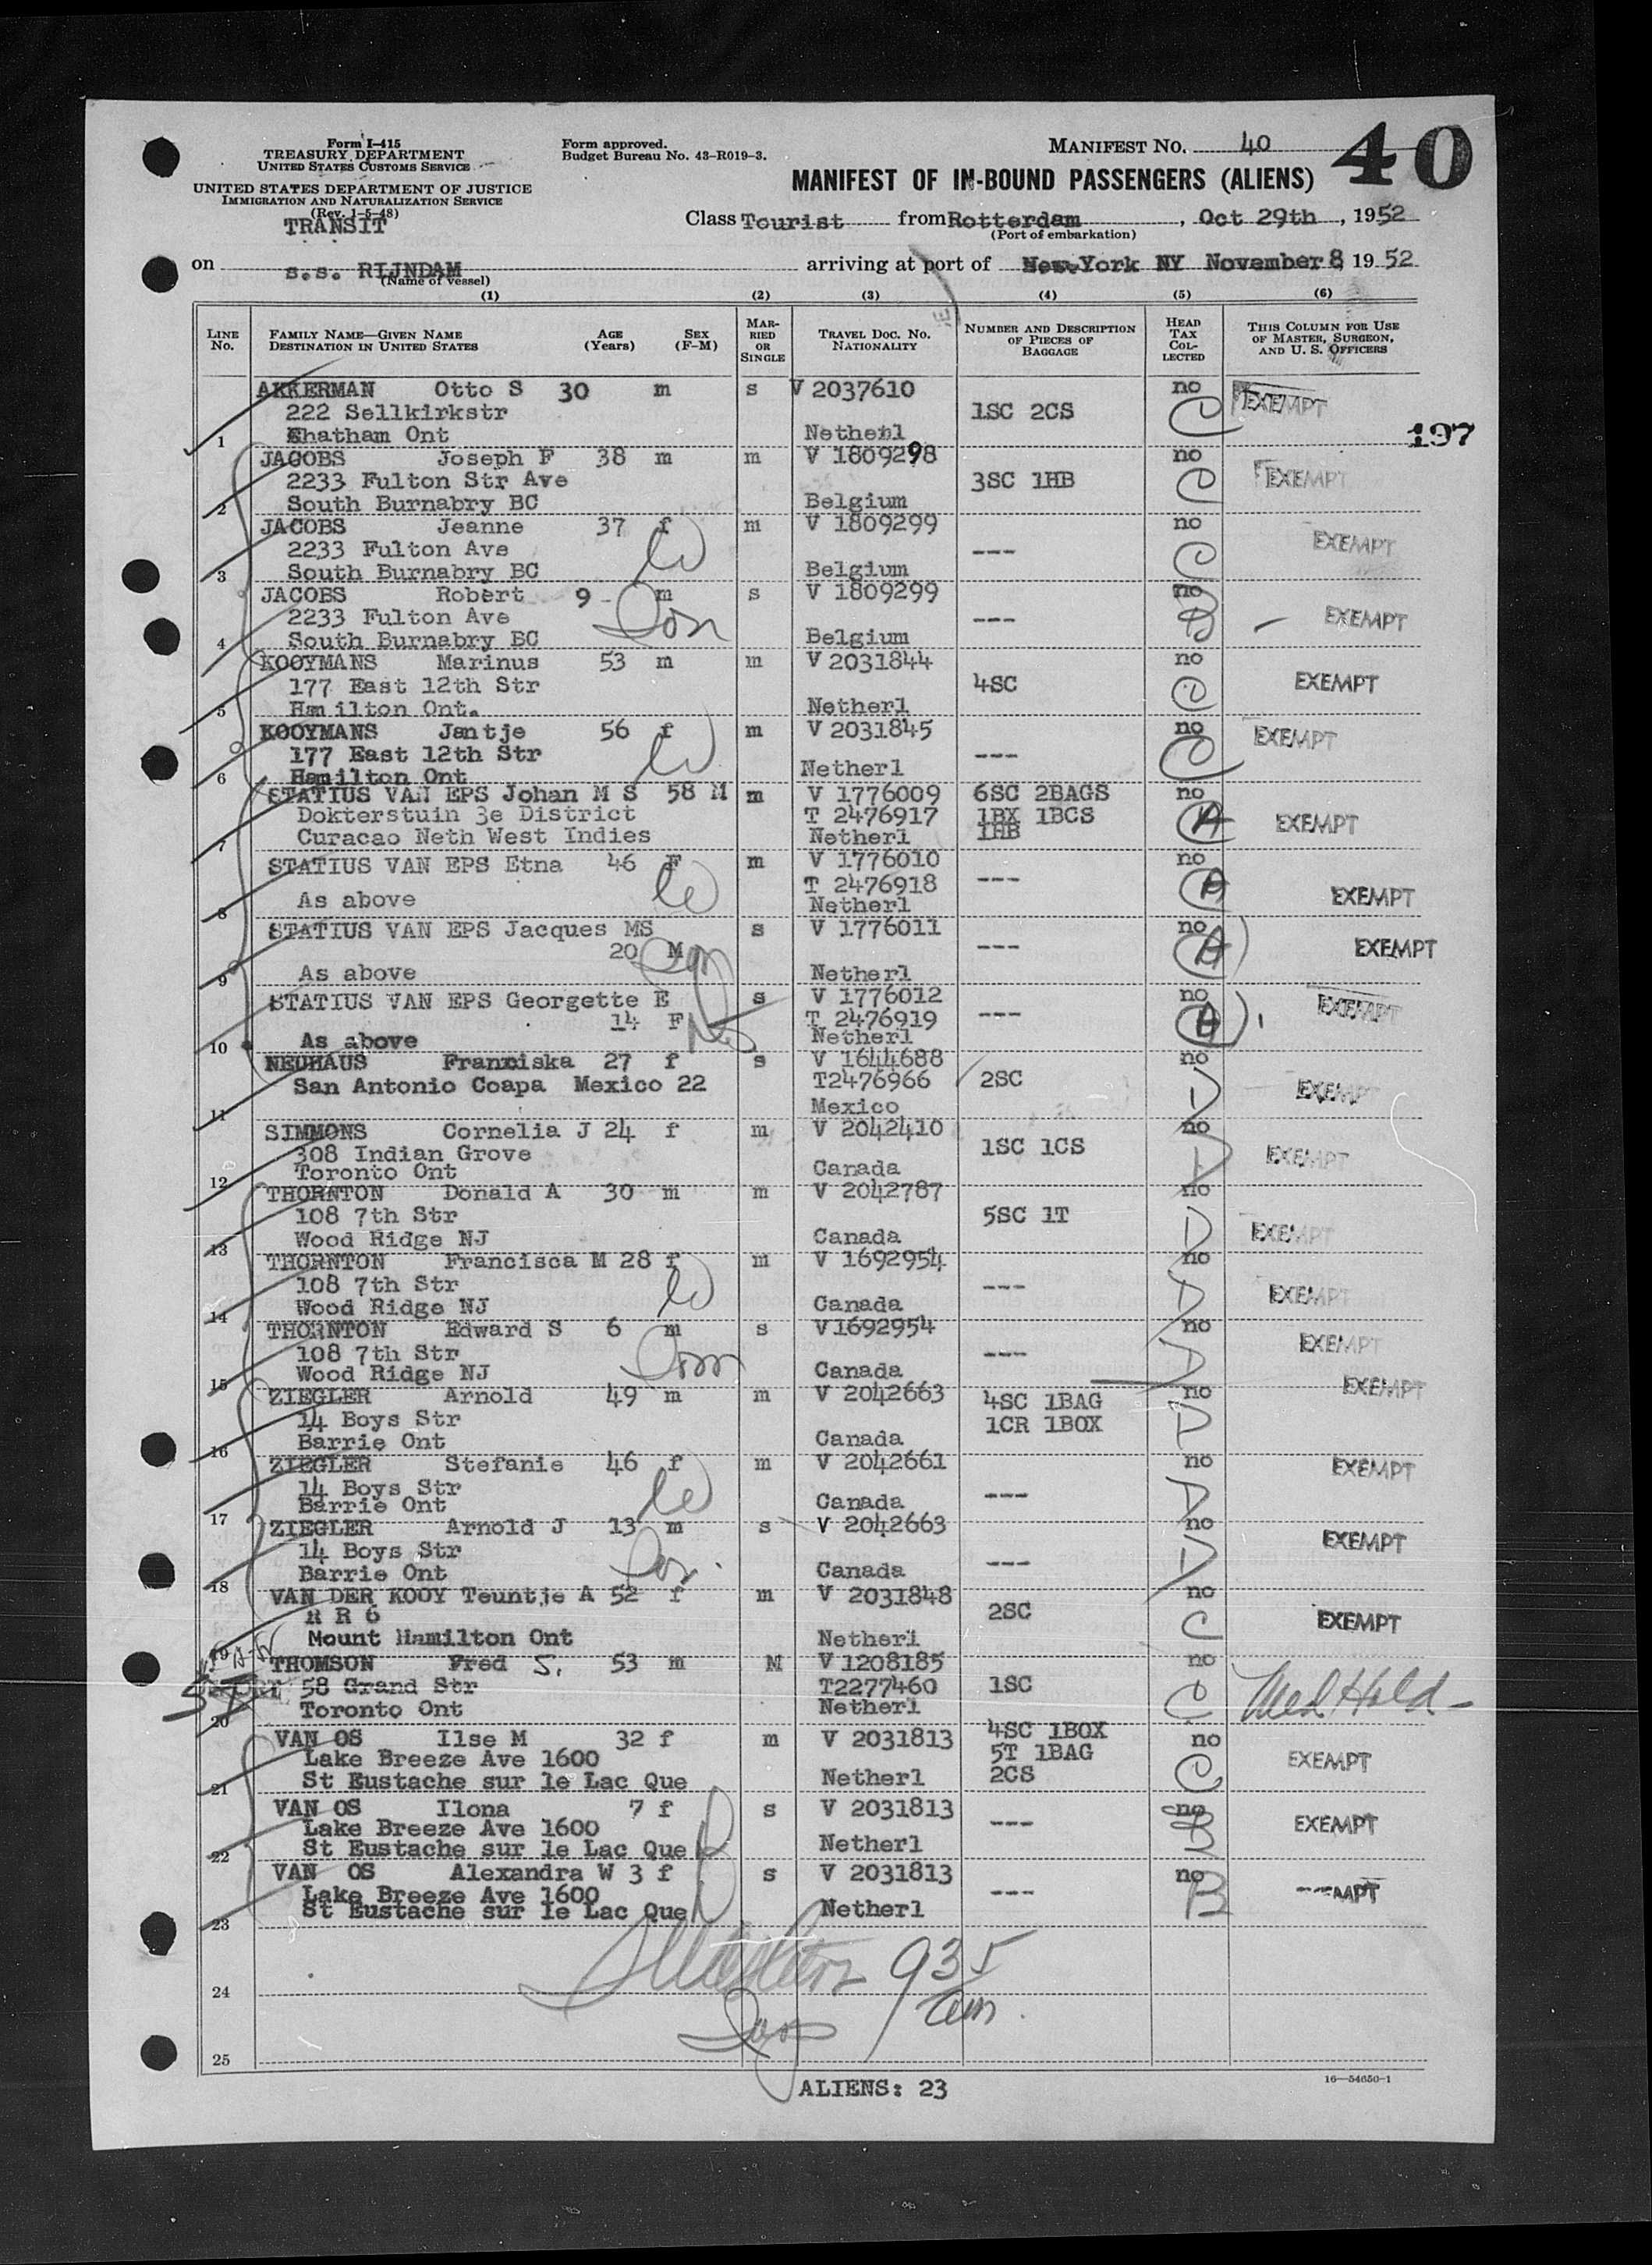 Form I-415
TREASURY DEPARTMENT
UNITED STATES CUSTOMS SERVICE
UNITED STATES DEPARTMENT OF JUSTICE
IMMIGRATION AND NATURALIZATION SERVICE
(Rev. 1-5-48)
TRANSIT
Form approved.
Budget Bureau No. 43-R019-3.
MANIFEST NO. 40
40
MANIFEST OF IN-BOUND PASSENGERS (ALIENS)
Class Tourist from Rotterdam, Oct 29th, 1952
(Port of embarkation)
on s.s. RIJNDAM arriving at port of New York NY November 8 1952
(Name of vessel)
(1) (2) (3) (4) (5) (6)
LINE NO. FAMILY NAME—GIVEN NAME DESTINATION IN UNITED STATES AGE (Years) SEX (F-M) MARRIED OR SINGLE TRAVEL DOC. NO. NATIONALITY NUMBER AND DESCRIPTION OF PIECES OF BAGGAGE HEAD TAX COLLECTED THIS COLUMN FOR USE OF MASTER, SURGEON, AND U. S. OFFICERS
AKKERMAN Otto S 30 m s V 2037610 no EXEMPT
222 Sellkirkstr 1SC 2CS C
1 Chatham Ont Netherl 197
JACOBS Joseph F 38 m m V 1809298 no EXEMPT
2233 Fulton Str Ave 3SC 1HB C
2 South Burnabry BC Belgium
JACOBS Jeanne 37 f m V 1809299 no EXEMPT
2233 Fulton Ave --- C
3 South Burnabry BC Belgium
JACOBS Robert 9 m s V 1809299 no
2233 Fulton Ave Son --- B EXEMPT
4 South Burnabry BC Belgium
KOOYMANS Marinus 53 m m V 2031844 no
177 East 12th Str 4SC C EXEMPT
5 Hamilton Ont. Netherl
KOOYMANS Jantje 56 f m V 2031845 no EXEMPT
177 East 12th Str --- C
6 Hamilton Ont Netherl
STATIUS VAN EPS Johan M S 58 M m V 1776009 6SC 2BAGS no
Dokterstuin 3e District T 2476917 1BX 1BCS A EXEMPT
7 Curacao Neth West Indies Netherl 1HB
STATIUS VAN EPS Etna 46 F m V 1776010 no
T 2476918 --- A
8 As above Netherl EXEMPT
STATIUS VAN EPS Jacques MS s V 1776011 no
20 M Son --- A EXEMPT
9 As above Netherl
STATIUS VAN EPS Georgette E s V 1776012 no EXEMPT
14 F T 2476919 --- A
10 As above Netherl
NEUHAUS Franziska 27 f s V 1644688 no
San Antonio Coapa Mexico 22 T2476966 2SC D EXEMPT
11 Mexico
SIMMONS Cornelia J 24 f m V 2042410 no
308 Indian Grove 1SC 1CS D EXEMPT
12 Toronto Ont Canada
THORNTON Donald A 30 m m V 2042787 no
108 7th Str 5SC 1T D EXEMPT
13 Wood Ridge NJ Canada
THORNTON Francisca M 28 f m V 1692954 no
108 7th Str --- D EXEMPT
14 Wood Ridge NJ Canada
THORNTON Edward S 6 m s V1692954 no EXEMPT
108 7th Str Son --- D
15 Wood Ridge NJ Canada
ZIEGLER Arnold 49 m m V 2042663 4SC 1BAG no EXEMPT
14 Boys Str 1CR 1BOX D
16 Barrie Ont Canada
ZIEGLER Stefanie 46 f m V 2042661 no EXEMPT
14 Boys Str --- D
17 Barrie Ont Canada
ZIEGLER Arnold J 13 m s V 2042663 no EXEMPT
14 Boys Str Son --- D
18 Barrie Ont Canada
VAN DER KOOY Teuntje A 52 f m V 2031848 no
R R 6 2SC C EXEMPT
19 Mount Hamilton Ont Netherl
THOMSON Fred S. 53 m M V 1208185 no
58 Grand Str T2277460 1SC C Med Hold -
20 Toronto Ont Netherl
VAN OS Ilse M 32 f m V 2031813 4SC 1BOX no
Lake Breeze Ave 1600 5T 1BAG C EXEMPT
21 St Eustache sur le Lac Que Netherl 2CS
VAN OS Ilona 7 f s V 2031813 no
Lake Breeze Ave 1600 --- B EXEMPT
22 St Eustache sur le Lac Que Netherl
VAN OS Alexandra W 3 f s V 2031813 no
Lake Breeze Ave 1600 --- B EMPT
23 St Eustache sur le Lac Que Netherl
935 am
24
25
ALIENS: 23
16—54650-1